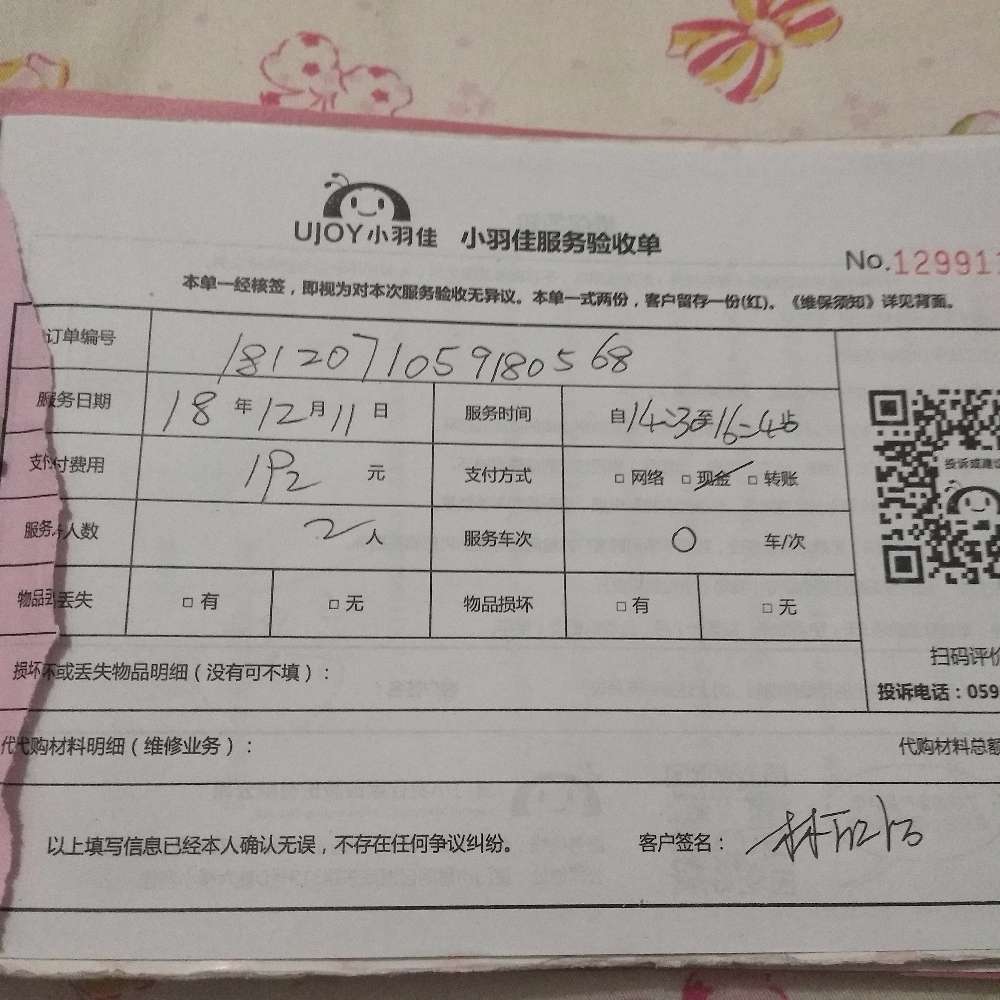 UJOY小羽佳 小羽佳服务验收单
No.129911
本单一经核签，即视为对本次服务验收无异议。本单一式两份，客户留存一份(红)。《维保须知》详见背面。
订单编号 1812071059180568
服务日期 18年12月11日 服务时间 自14:30至16:45止
支付费用 192元 支付方式 □网络 □现金 □转账
投诉或建议
服务人数 2人 服务车次 0 车/次
物品丢失 □有 □无 物品损坏 □有 □无
扫码评价
损坏或丢失物品明细（没有可不填）：
投诉电话：059
代购材料明细（维修业务）： 代购材料总额
以上填写信息已经本人确认无误，不存在任何争议纠纷。 客户签名：林